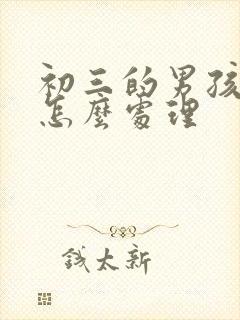 初三的男孩
怎麼處理
錢太新